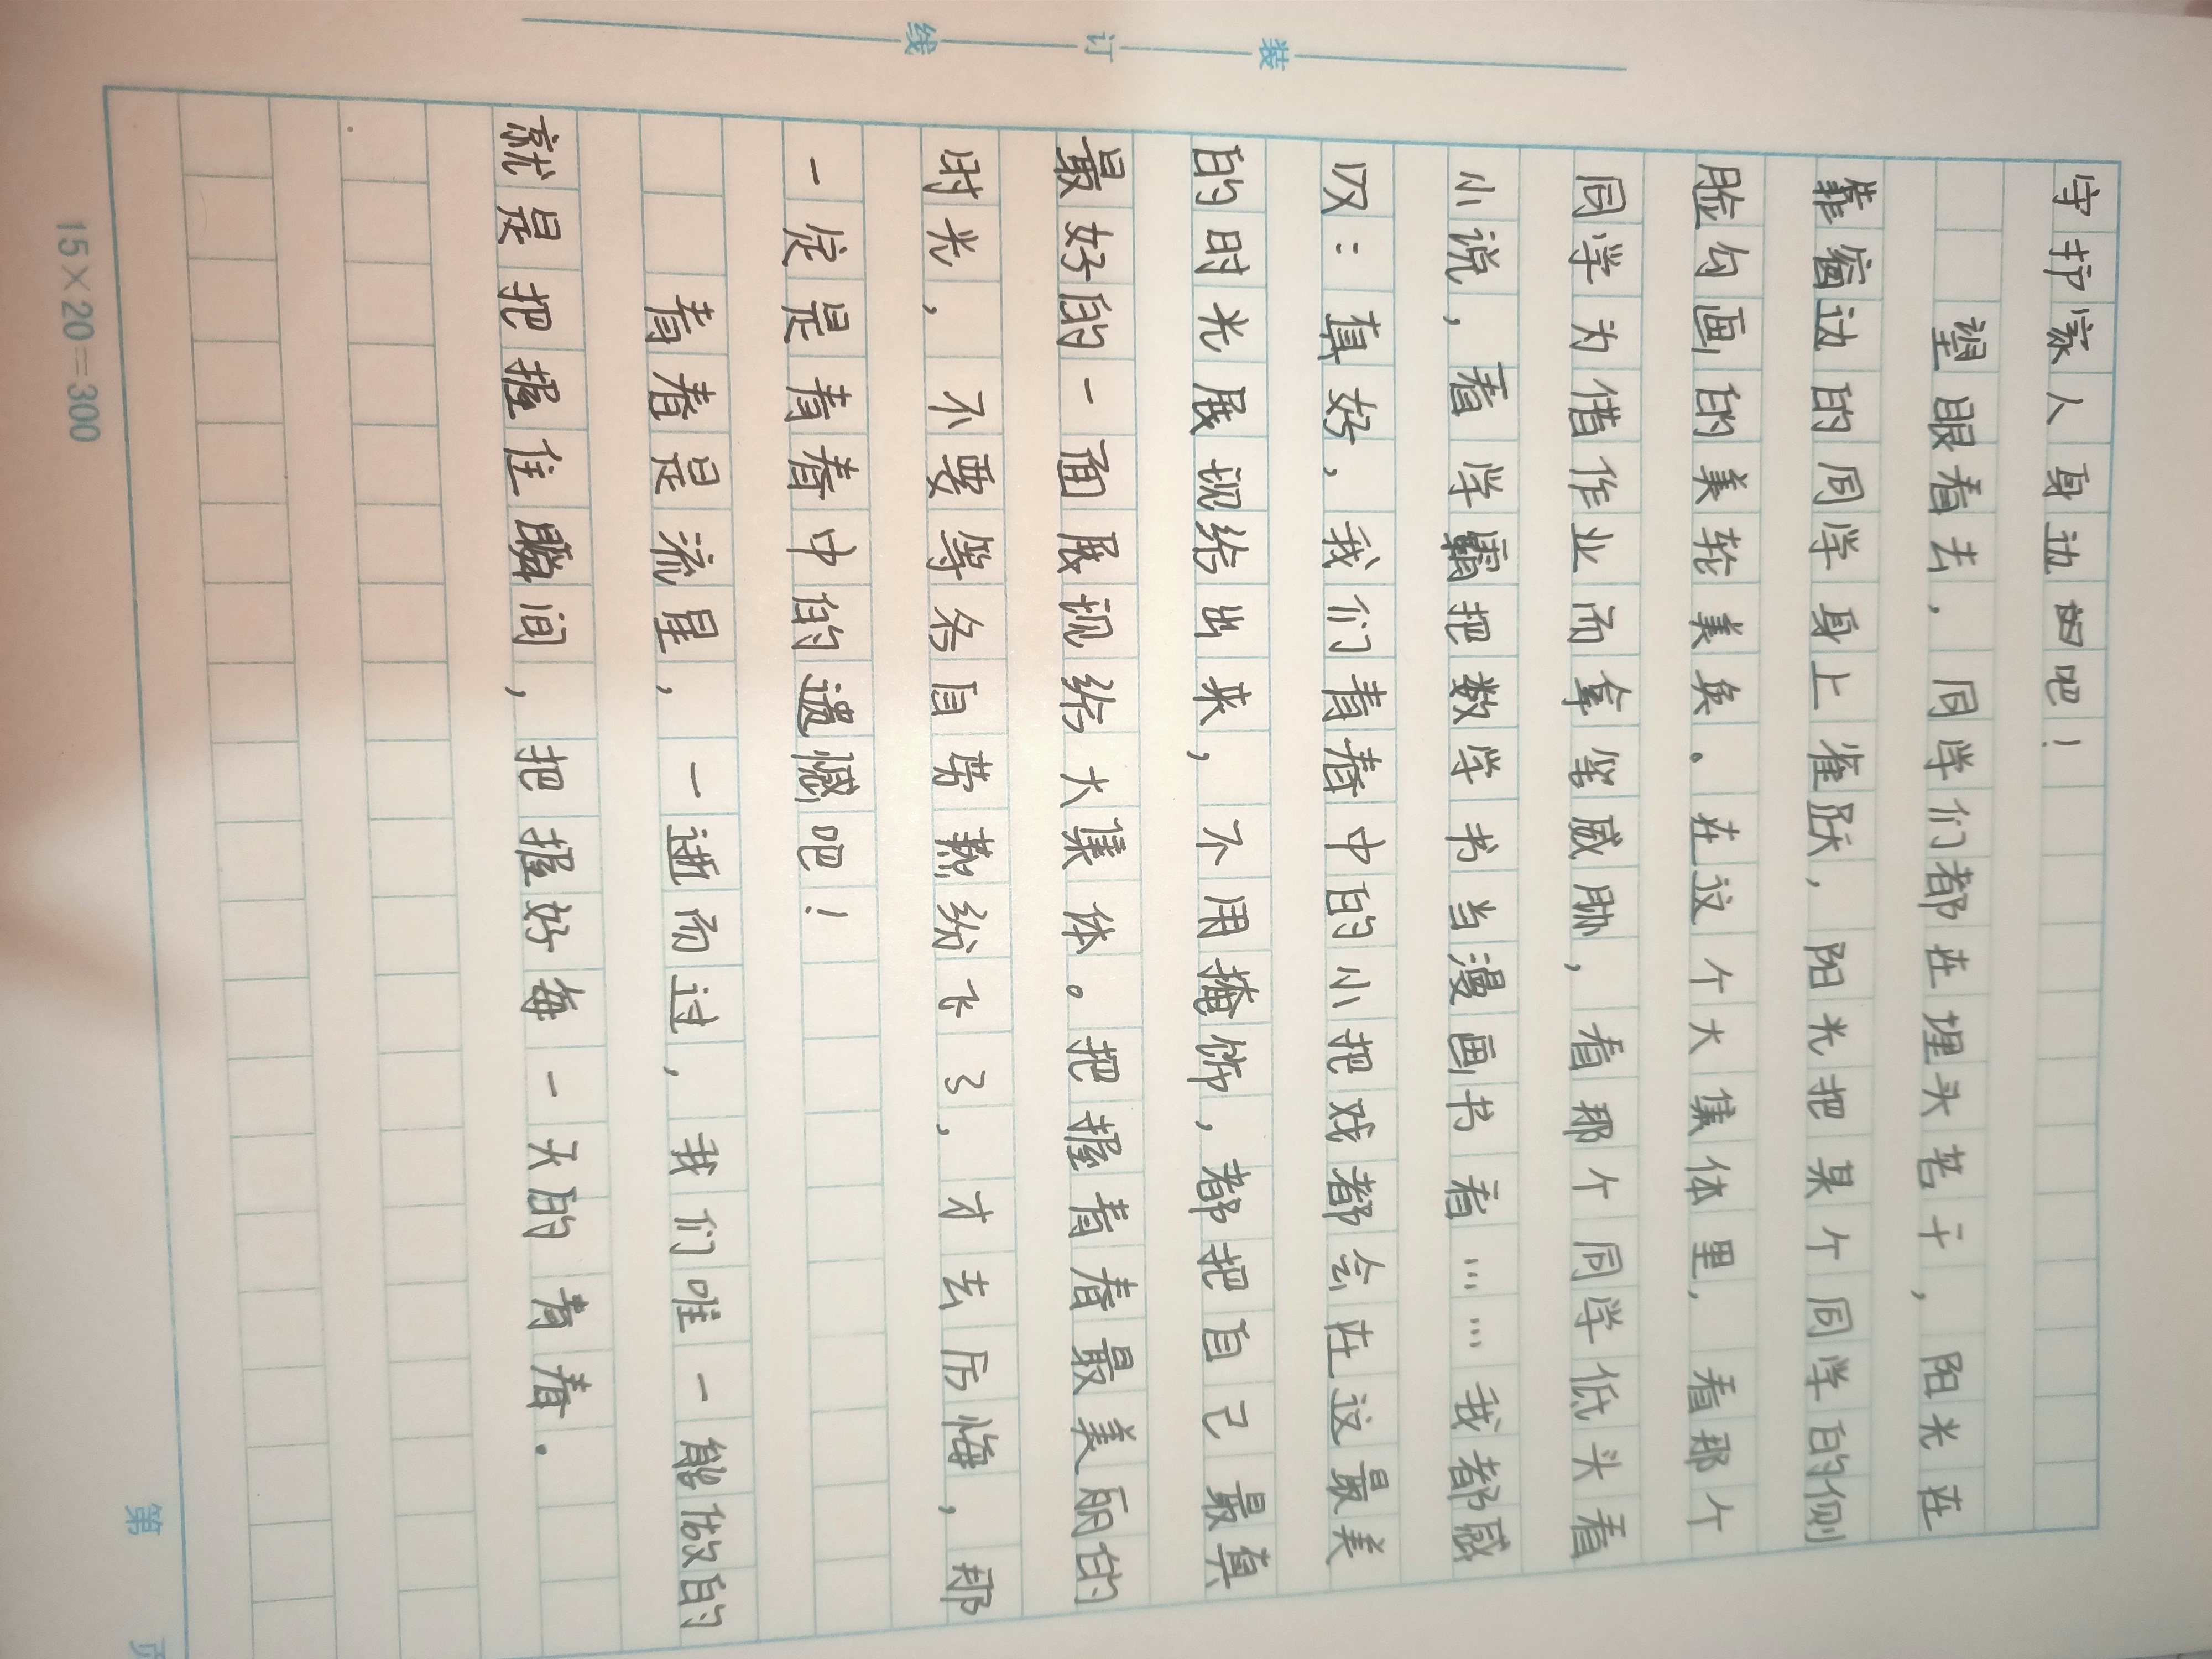 装 订 线
守护家人身边的吧！
望眼看去，同学们都在埋头苦干，阳光在
靠窗边的同学身上雀跃，阳光把某个同学的侧
脸勾画的美轮美奂。在这个大集体里，看那个
同学为借作业而拿笔威胁，看那个同学低头看
小说，看学霸把数学书当漫画书看……我都感
叹：真好，我们青春中的小把戏都会在这最美
的时光展现给出来，不用掩饰，都把自己最真
最好的一面展现给大集体。把握青春最美丽的
时光，不要等务自劳热纷飞了，才去后悔，那
一定是青春中的遗憾吧！
青春是流星，一逝而过，我们唯一能做的
就是把握住瞬间，把握好每一天的青春.
15×20=300
第 页